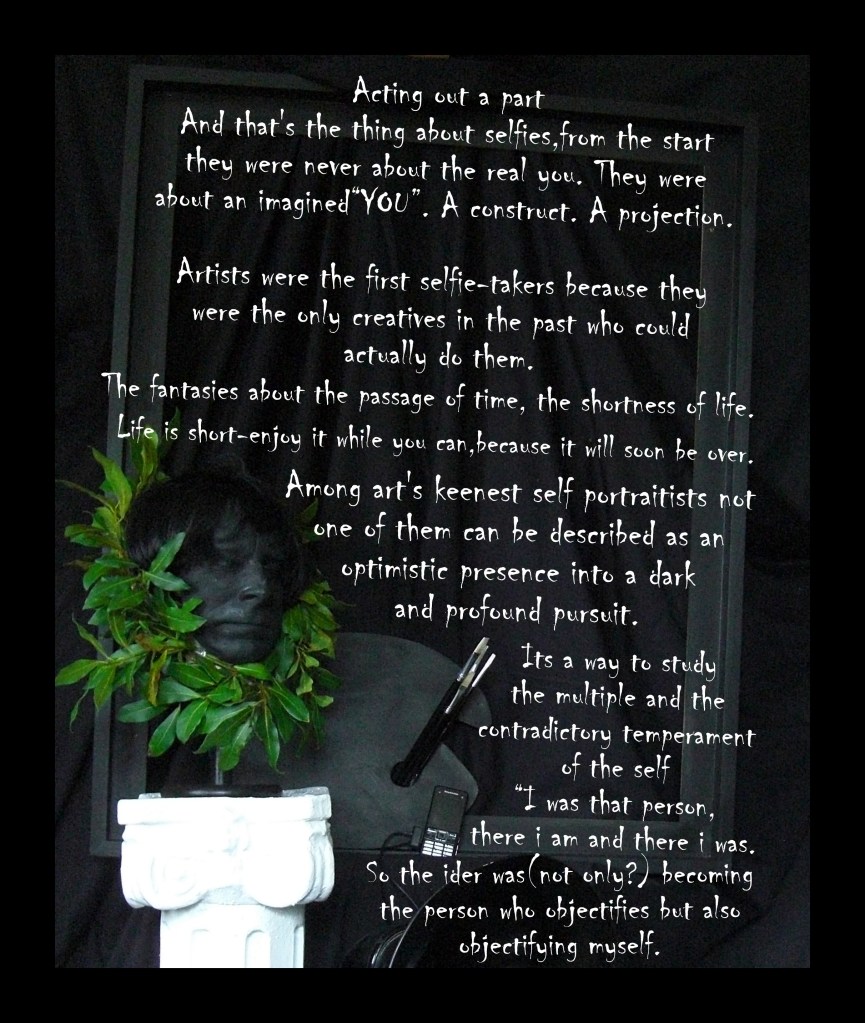 Acting out a part
And that's the thing about selfies,from the start
they were never about the real you. They were
about an imagined“YOU”. A construct. A projection.
Artists were the first selfie-takers because they
were the only creatives in the past who could
actually do them.
The fantasies about the passage of time, the shortness of life.
Life is short-enjoy it while you can,because it will soon be over.
Among art's keenest self portraitists not
one of them can be described as an
optimistic presence into a dark
and profound pursuit.
Its a way to study
the multiple and the
contradictory temperament
of the self
“I was that person,
there i am and there i was.
So the ider was(not only?) becoming
the person who objectifies but also
objectifying myself.